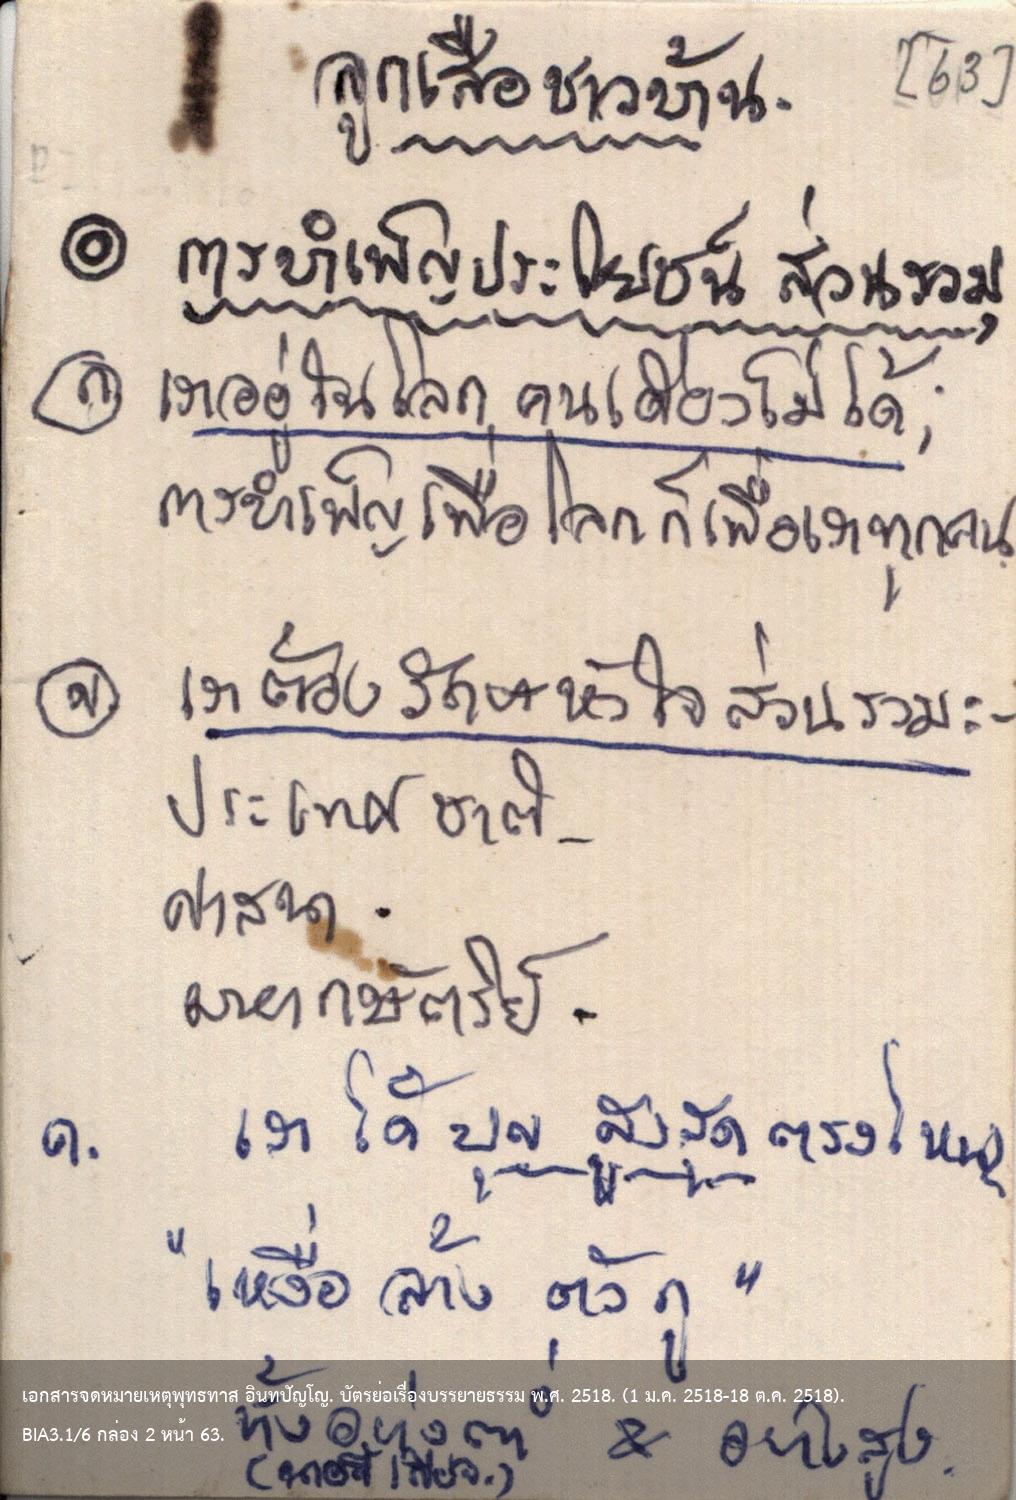 ลูกเสือชาวบ้าน.
[63]
การบำเพ็ญประโยชน์ ส่วนรวม
ก เราอยู่ในโลก คนเดียวไม่ได้;
การบำเพ็ญเพื่อโลกก็เพื่อเราทุกคน
ข เราต้องรักษาหัวใจส่วนรวม:-
ประเทศชาติ_
ศาสนา.
มหากษัตริย์.
ค. เราได้บุญสูงสุดตรงไหน
"เหงื่อล้างตัวกู"
ทั้งอย่างต่ำ & อย่างสูง.
เอกสารจดหมายเหตุพุทธทาส อินทปัญโญ. บัตรย่อเรื่องบรรยายธรรม พ.ศ. 2518. (1 ม.ค. 2518-18 ต.ค. 2518).
BIA3.1/6 กล่อง 2 หน้า 63.